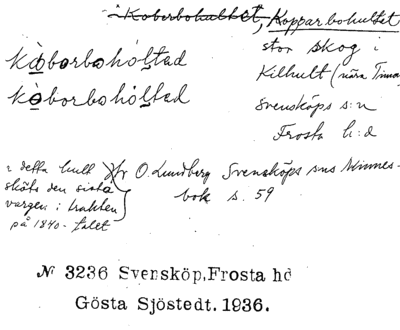 i Koberbohultet, Kopparbohultet
stor skog i
Kilhult (nära Trina
Svensköps s:n
Frosta h:d
kȯborbohóltad
kȯborbohóltad
i detta hult
sköts den sista
vargen i trakten
på 1840-talet
jfr O. Lundberg Svensköps sns Minnes-
bok s. 59
№ 3236 Svensköp,Frosta hd
Gösta Sjöstedt. 1936.